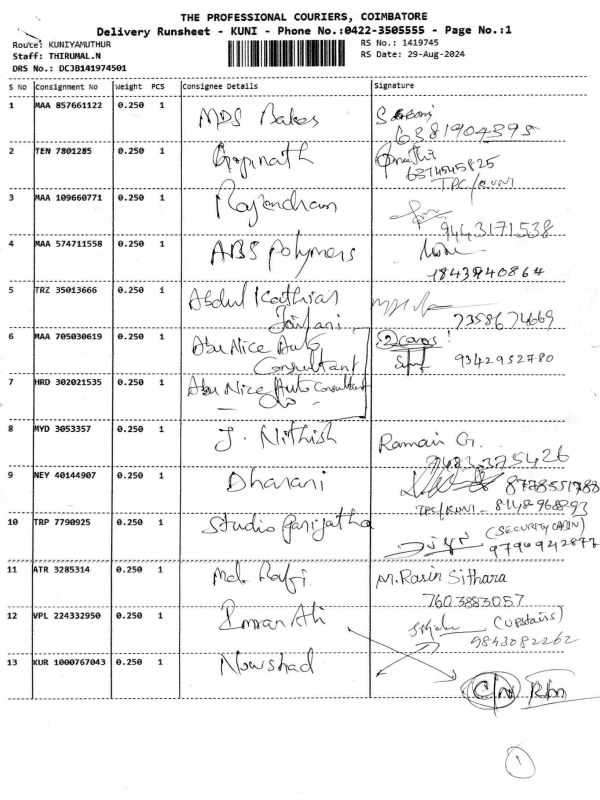 THE PROFESSIONAL COURIERS, COIMBATORE
Delivery Runsheet - KUNI - Phone No.:0422-3505555 - Page No.:1
Route: KUNIYAMUTHUR
RS No.: 1419745
Staff: THIRUMAL.N
RS Date: 29-Aug-2024
DRS No.: DCJB141974501
S No Consignment No Weight PCS Consignee Details Signature
1 MAA 857661122 0.250 1 MDS Bakes
6381904395
2 TEN 7801285 0.250 1 Gopinath
6374545825
TPC/KUNI
3 MAA 109660771 0.250 1 Rajendran
9443171538
4 MAA 574711558 0.250 1 ABS Polymers
5 TRZ 35013666 0.250 1 Abdul Kathiar
Jailani
7358674669
6 MAA 705030619 0.250 1 Abu Nice Auto
Consultant
2 covers!
9342952780
7 HRD 302021535 0.250 1 Abu Nice Auto Consultant
8 MYD 3053357 0.250 1 J. Nithish
Raman G.
9 NEY 40144907 0.250 1 Dharani
TPC/KUNI - 8148968893
10 TRP 7790925 0.250 1 Studio Parijatha
(SECURITY CABIN)
9790942877
11 ATR 3285314 0.250 1 Md. Rafi
M. Rasin Sithara
7603883057
12 VPL 224332950 0.250 1 Imran Ali
(upstairs)
9843082262
13 KUR 1000767043 0.250 1 Nowshad
C/N
1